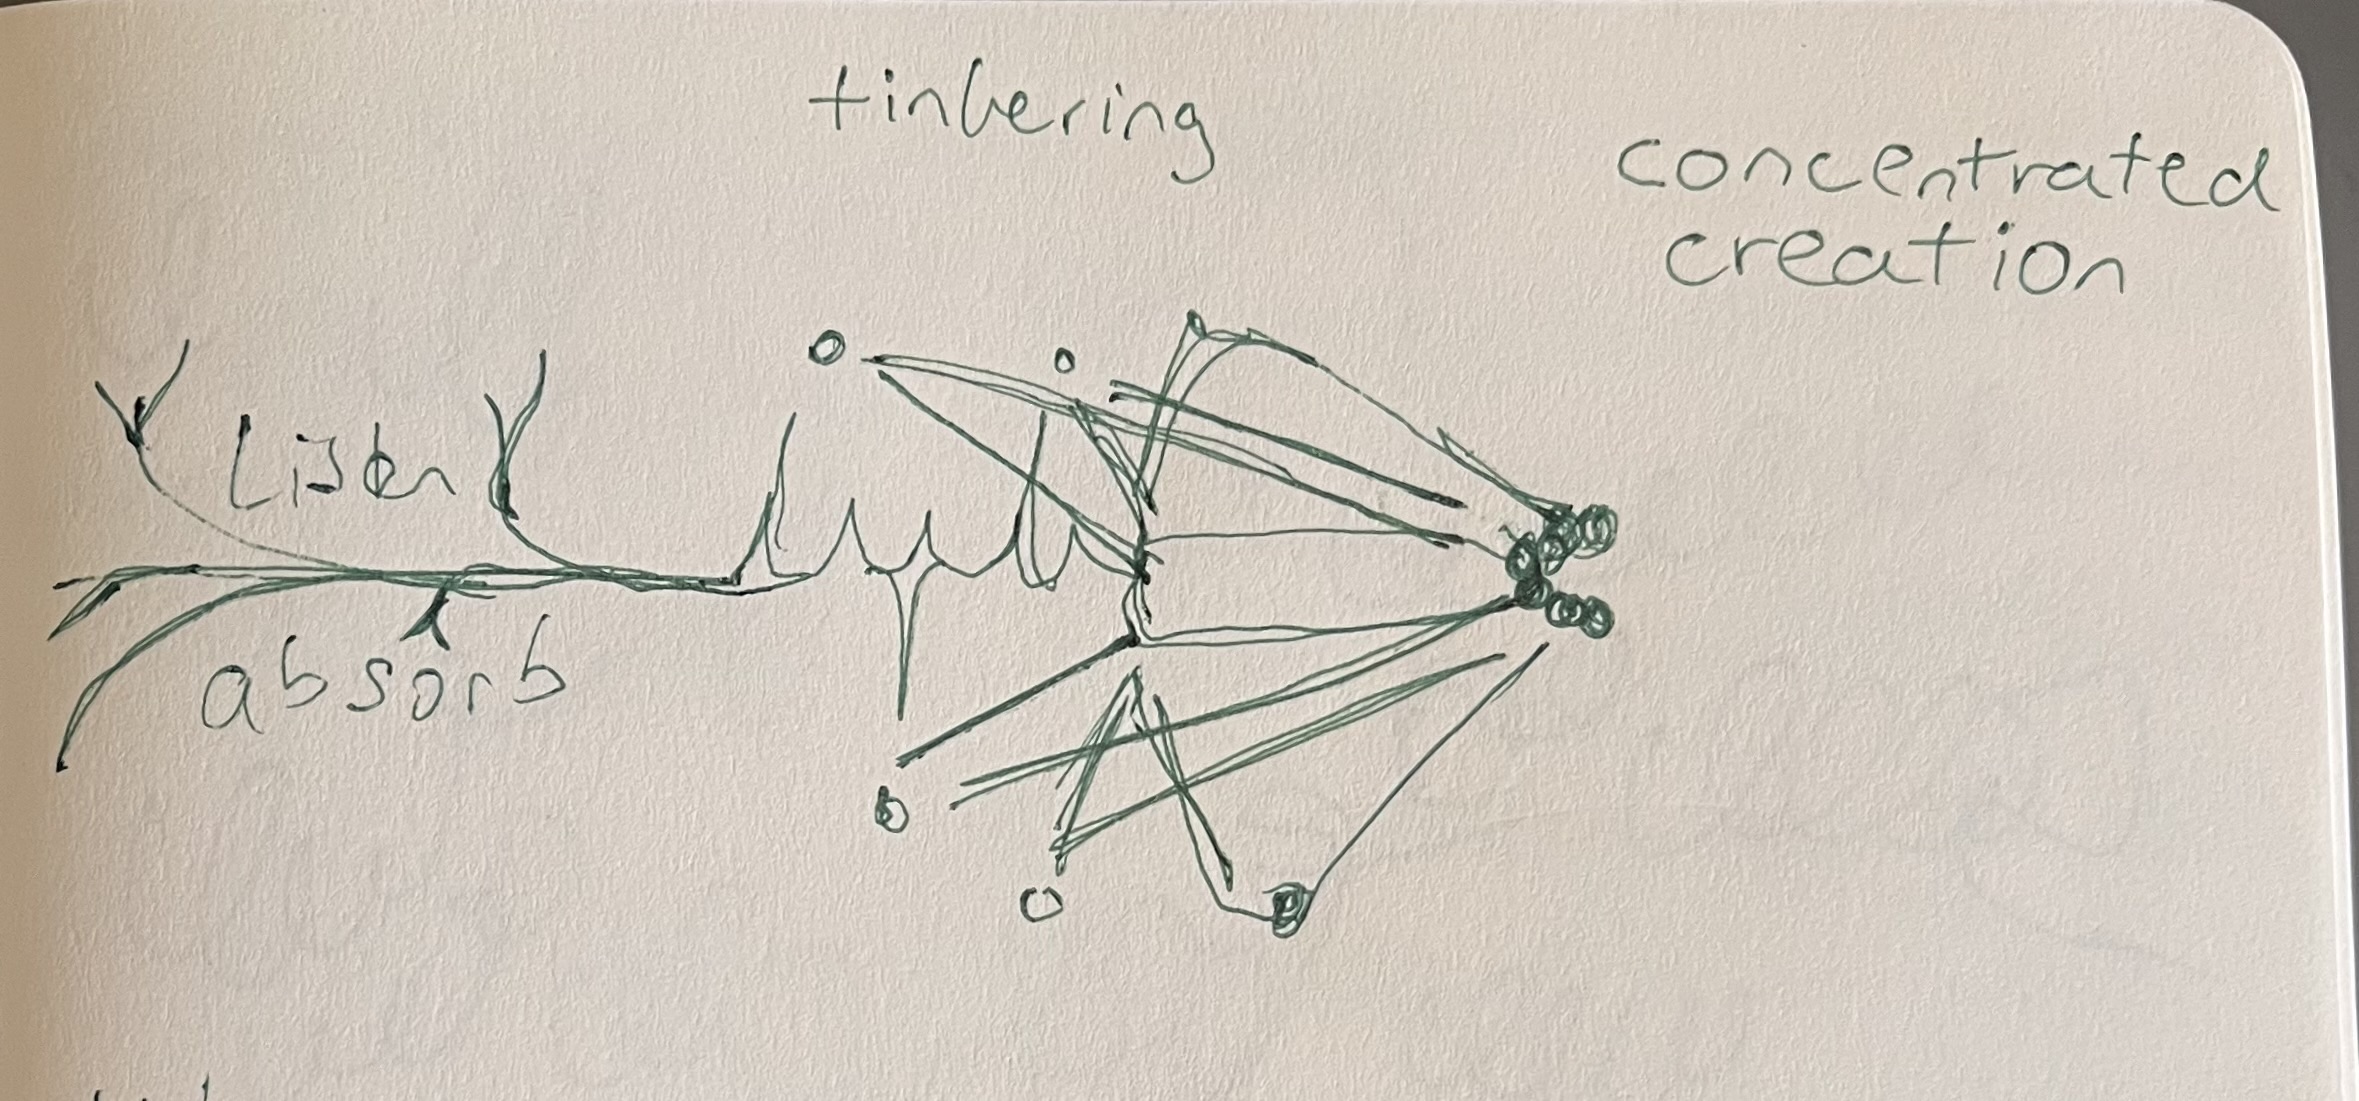 tinkering
concentrated
creation
Listen
absorb